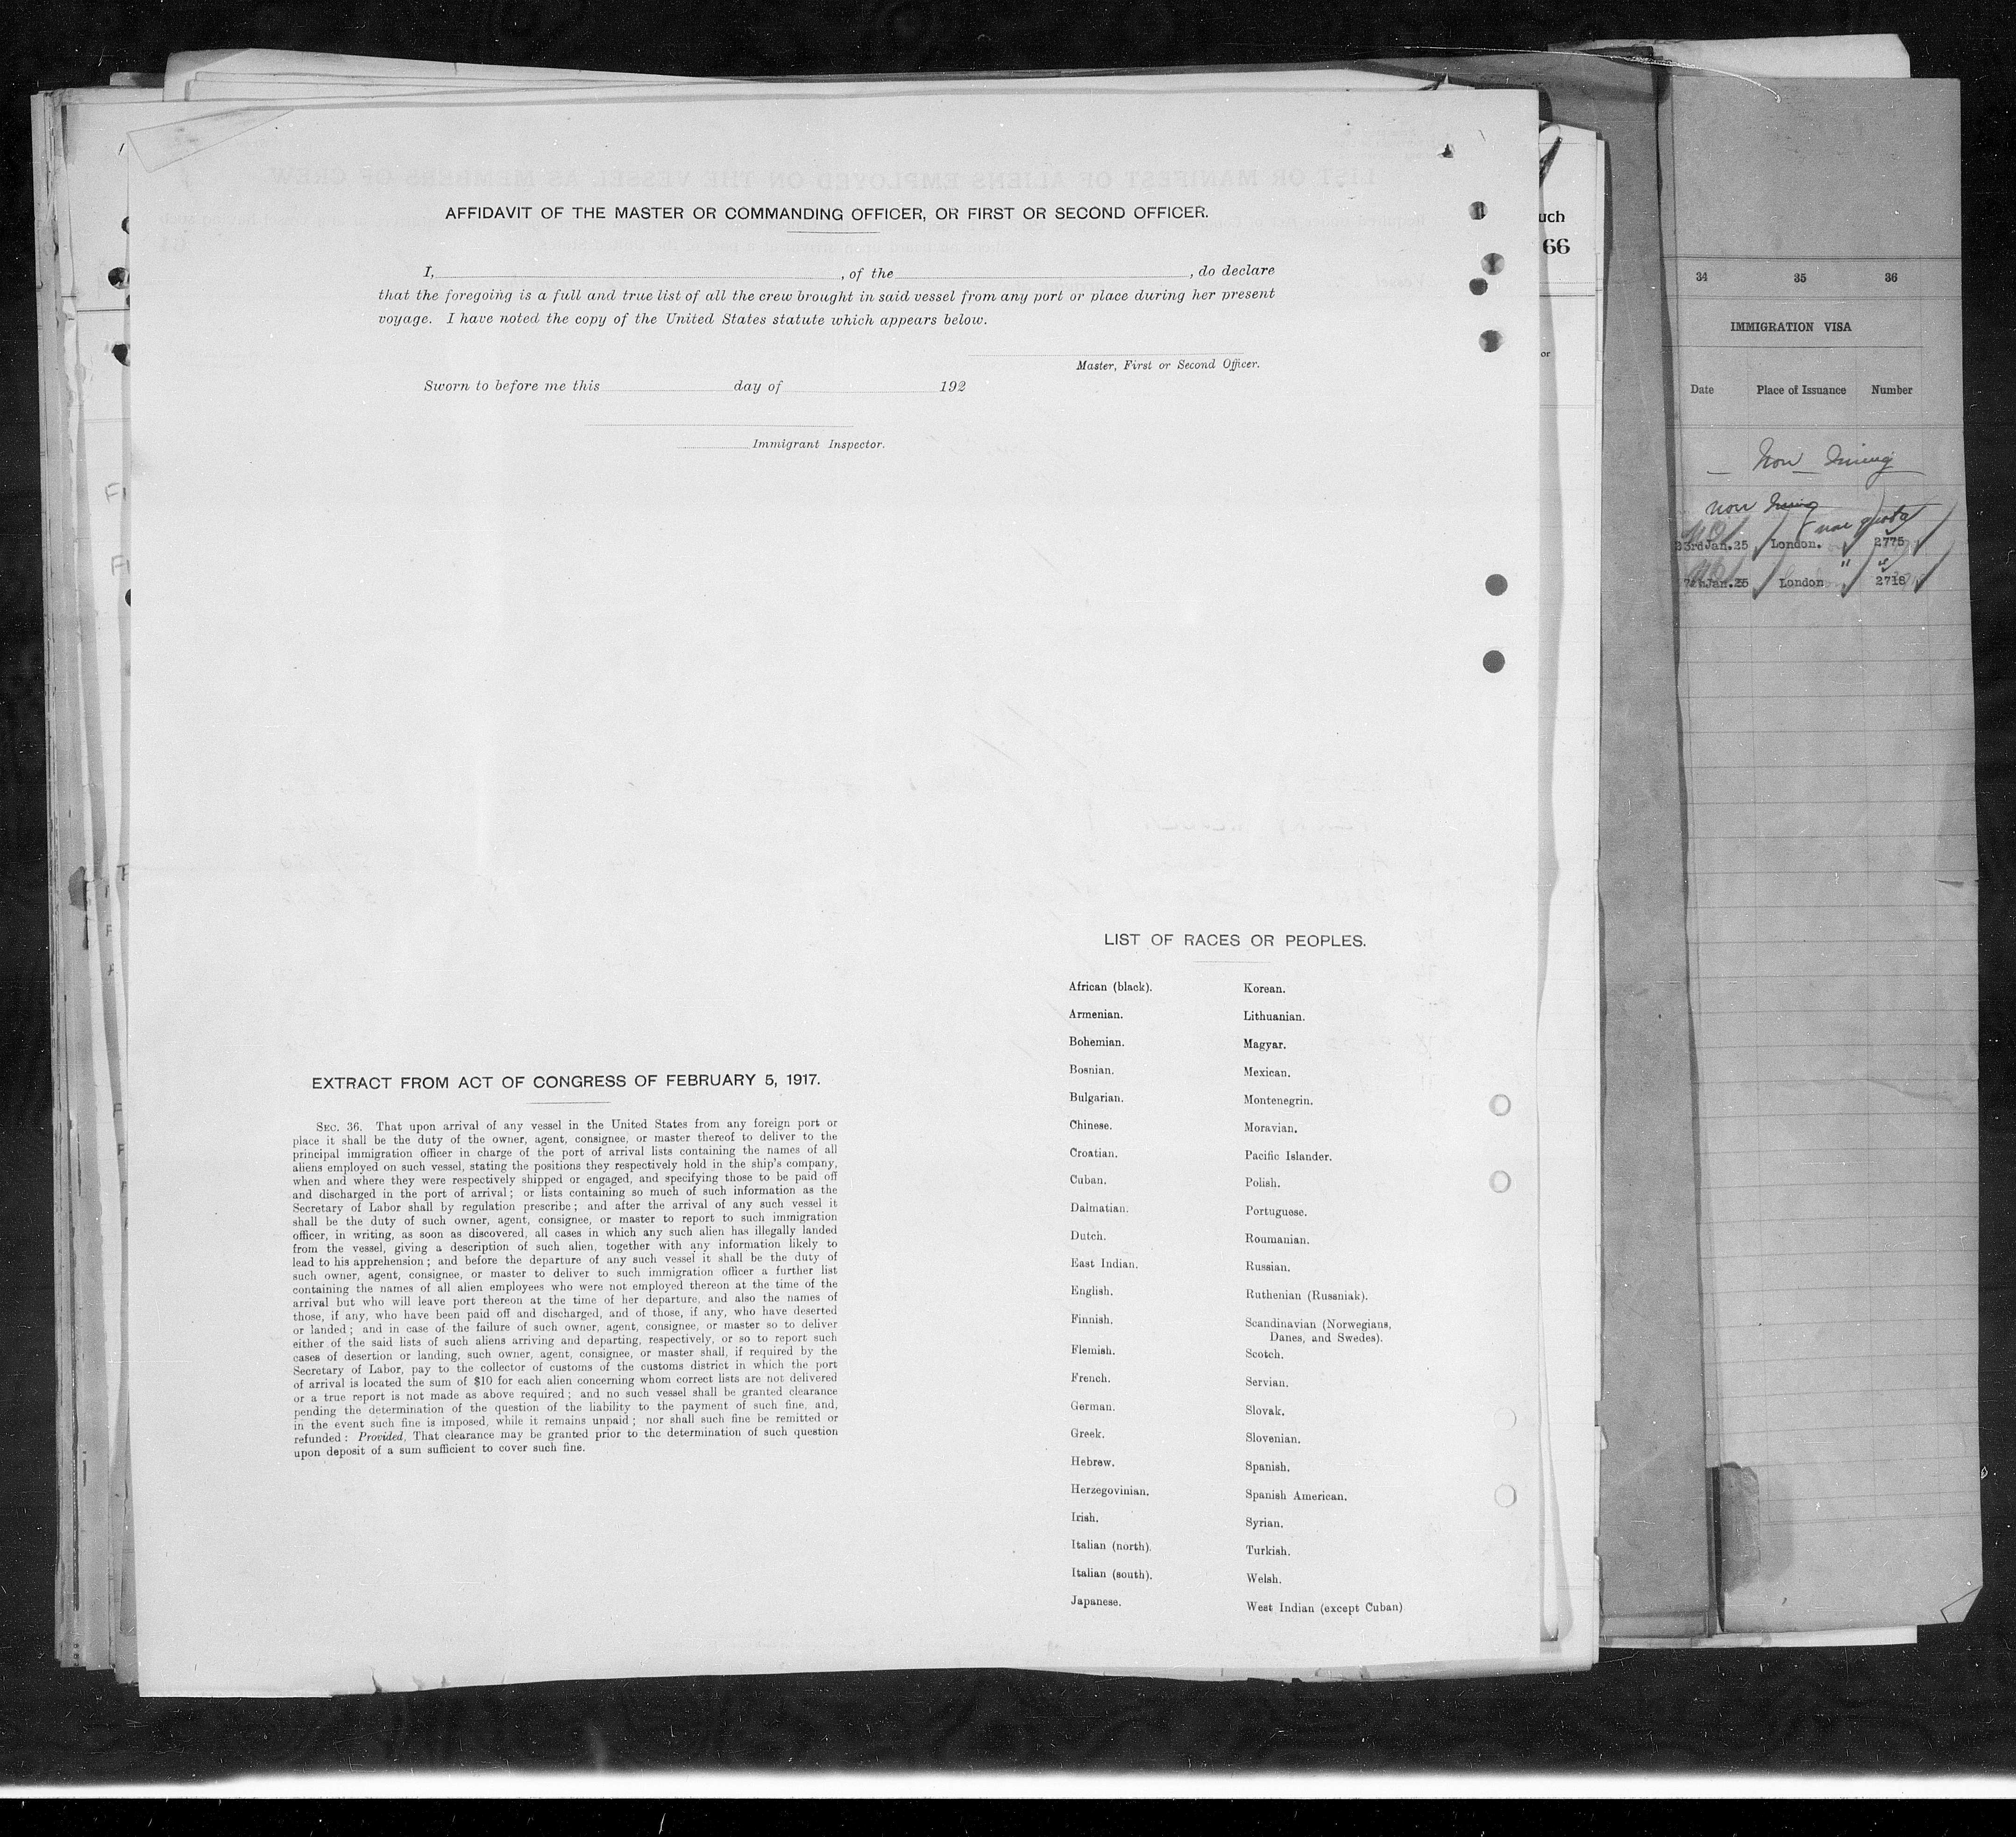 AFFIDAVIT OF THE MASTER OR COMMANDING OFFICER, OR FIRST OR SECOND OFFICER.
I, , of the , do declare
that the foregoing is a full and true list of all the crew brought in said vessel from any port or place during her present
voyage. I have noted the copy of the United States statute which appears below.
Master, First or Second Officer.
Sworn to before me this day of 192
Immigrant Inspector.
EXTRACT FROM ACT OF CONGRESS OF FEBRUARY 5, 1917.
SEC. 36. That upon arrival of any vessel in the United States from any foreign port or
place it shall be the duty of the owner, agent, consignee, or master thereof to deliver to the
principal immigration officer in charge of the port of arrival lists containing the names of all
aliens employed on such vessel, stating the positions they respectively hold in the ship's company,
when and where they were respectively shipped or engaged, and specifying those to be paid off
and discharged in the port of arrival; or lists containing so much of such information as the
Secretary of Labor shall by regulation prescribe; and after the arrival of any such vessel it
shall be the duty of such owner, agent, consignee, or master to report to such immigration
officer, in writing, as soon as discovered, all cases in which any such alien has illegally landed
from the vessel, giving a description of such alien, together with any information likely to
lead to his apprehension; and before the departure of any such vessel it shall be the duty of
such owner, agent, consignee, or master to deliver to such immigration officer a further list
containing the names of all alien employees who were not employed thereon at the time of the
arrival but who will leave port thereon at the time of her departure, and also the names of
those, if any, who have been paid off and discharged, and of those, if any, who have deserted
or landed; and in case of the failure of such owner, agent, consignee, or master so to deliver
either of the said lists of such aliens arriving and departing, respectively, or so to report such
cases of desertion or landing, such owner, agent, consignee, or master shall, if required by the
Secretary of Labor, pay to the collector of customs of the customs district in which the port
of arrival is located the sum of $10 for each alien concerning whom correct lists are not delivered
or a true report is not made as above required; and no such vessel shall be granted clearance
pending the determination of the question of the liability to the payment of such fine, and,
in the event such fine is imposed, while it remains unpaid; nor shall such fine be remitted or
refunded: Provided, That clearance may be granted prior to the determination of such question
upon deposit of a sum sufficient to cover such fine.
LIST OF RACES OR PEOPLES.
African (black).
Armenian.
Bohemian.
Bosnian.
Bulgarian.
Chinese.
Croatian.
Cuban.
Dalmatian.
Dutch.
East Indian.
English.
Finnish.
Flemish.
French.
German.
Greek.
Hebrew.
Herzegovinian.
Irish.
Italian (north).
Italian (south).
Japanese.
Korean.
Lithuanian.
Magyar.
Mexican.
Montenegrin.
Moravian.
Pacific Islander.
Polish.
Portuguese.
Roumanian.
Russian.
Ruthenian (Russniak).
Scandinavian (Norwegians,
Danes, and Swedes).
Scotch.
Servian.
Slovak.
Slovenian.
Spanish.
Spanish American.
Syrian.
Turkish.
Welsh.
West Indian (except Cuban)
uch
66
or
34 35 36
IMMIGRATION VISA
Date Place of Issuance Number
Non
non
non quota
23rdJan.25 London. 2775
7thJan.25 London " 2718